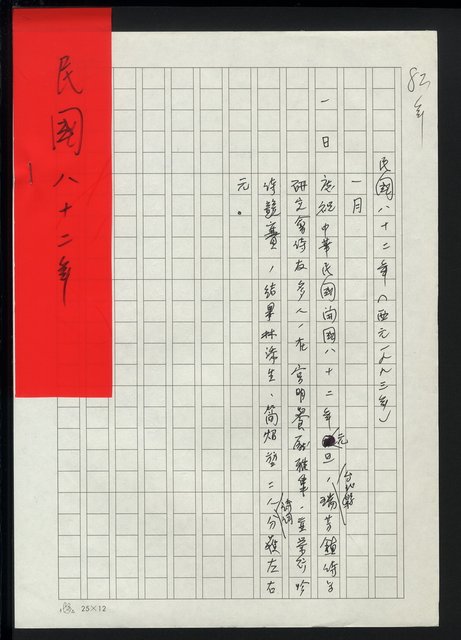 82年
民國八十二年（西元一九九三年）
一月
一日　慶祝中華民國開國八十二年元旦，台北縣瑞芳鎮詩學
研究會詩友多人，在宮明餐廳雅集，並舉行吟
詩競賽，結果林添生、簡炤堃二人分獲左右
元。
民國八十二年
25×12